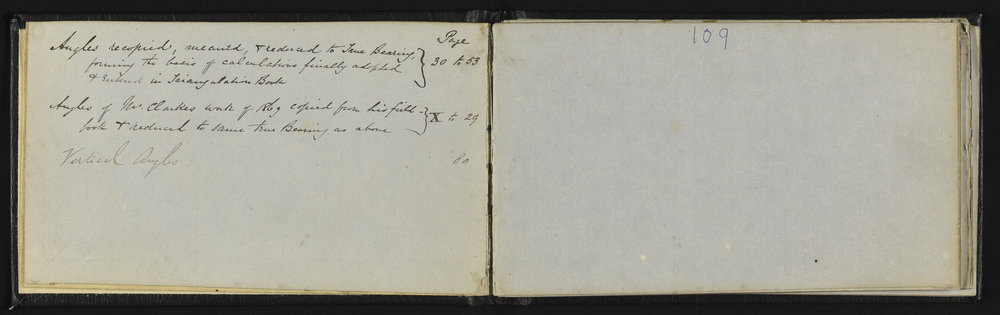 Page
Angles recopied, meaned, & reduced to True Bearing, } 30 to 53
forming the basis of calculations finally adopted
& Entered in Triangulation Book
Angles of Mr. Clarkes work of 1869 copied from his field- } X to 29
book & reduced to same true Bearing as above
Vertical Angles 80
109